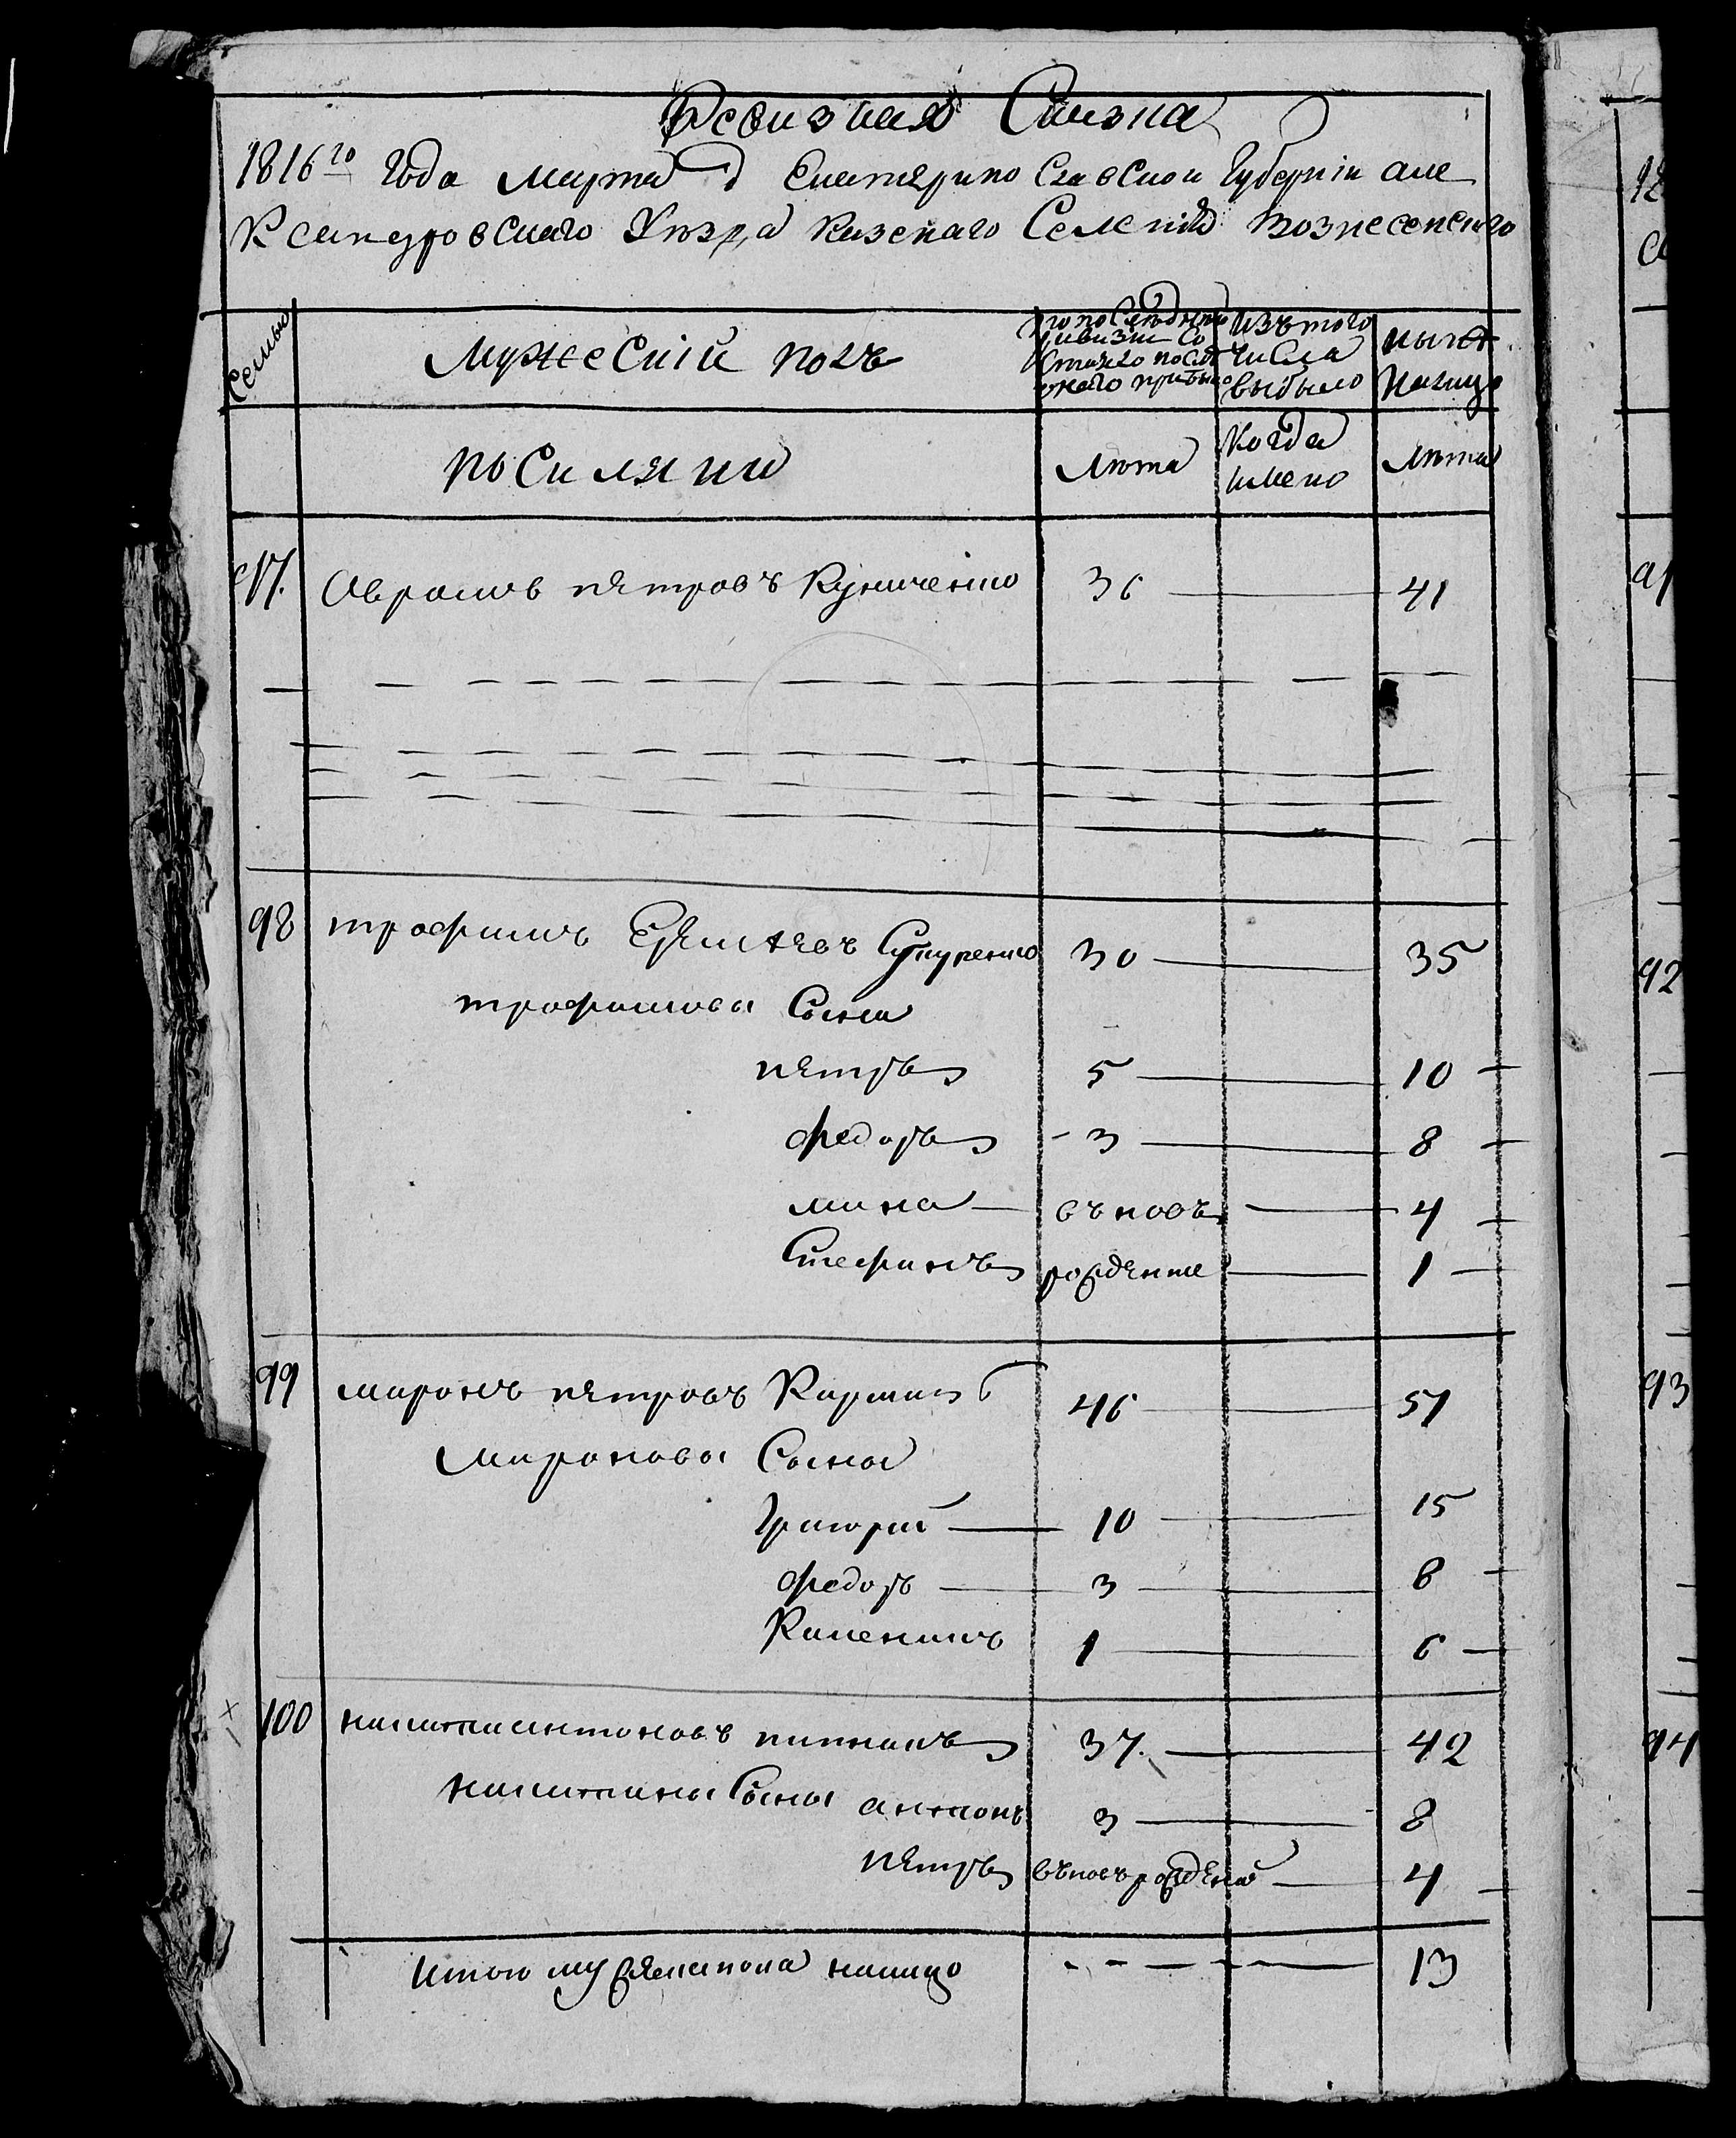 Ревизная Сказка
1816го Года Марта д Екатерино Славской Губернiи але
Ксандровскаго Уѣзда Казенаго Селенiя Вознесенскаго
Семьи
Мужескiй полъ
по последней ревизии Состояло и после онаго прибыло
изъ того числа выбыло
нынѣ налицо
поселяни
Лѣта
Когда имено
Лѣта
97. Аврамъ петровъ Куниченко 36 41
98 трофимъ Сутуренко 30 35
трофимовы Сыны
петръ 5 10
федоръ 3 8
мина въновь 4
Стефанъ рожденые 1
99 миронъ петровъ 46 51
мироновы Сыны
Григорий 10 15
федоръ 3 8
Климентий 1 6
100 никита антоновъ 37. 42
никитины Сыны антонъ 3 8
петръ въновь рожденой 4
Итого мужеска пола налицо 13
92
93
94